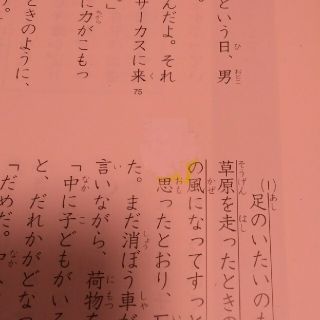 という日、男
んだよ。それ
サーカスに来
75
」
に力がこもっ
ときのように、
(1)足のいたいのも
草原を走ったときの
の風になってすっと
思ったとおり、
た。まだ消ぼう車が
言いながら、荷物を
「中に子どもがいる
と、だれかがどなっ
「だめだ。中